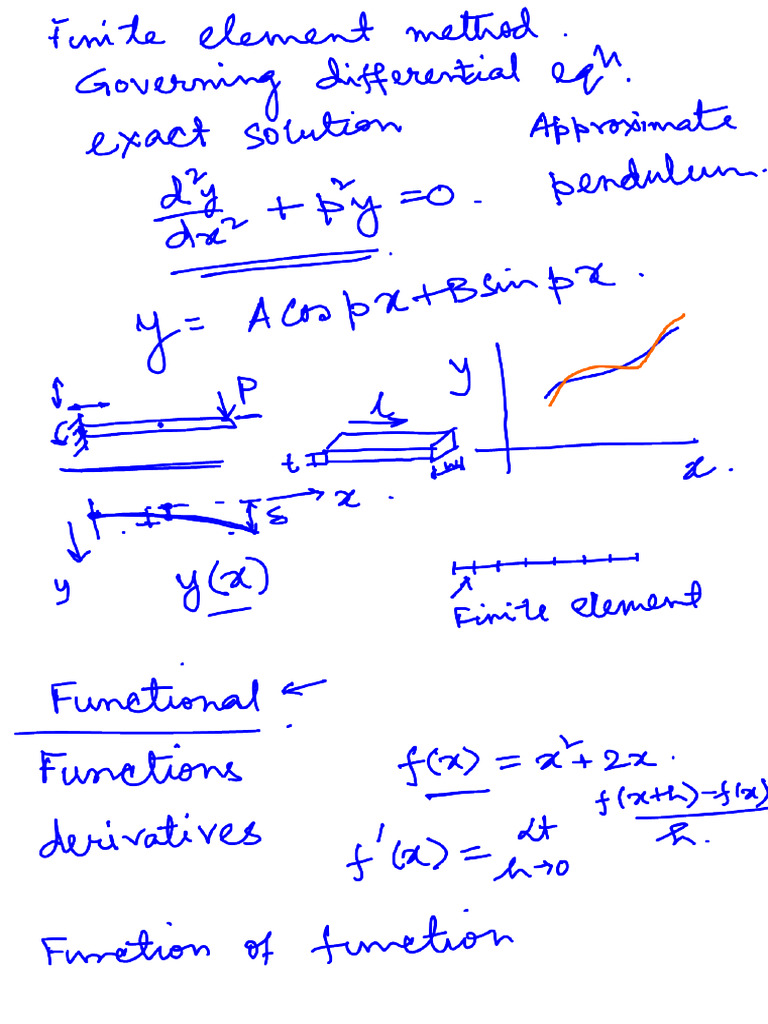 Finite element method.
Governing differential eqⁿ.
exact solution Approximate
d²y/dx² + p²y = 0. pendulum.
y = A cos px + B sin px.
P
l
y
t
w
x.
δ
x
y
y(x)
Finite element
Functional ←
Functions f(x) = x² + 2x.
derivatives f'(x) = Lt h→0 f(x+h)-f(x)/h.
Function of function